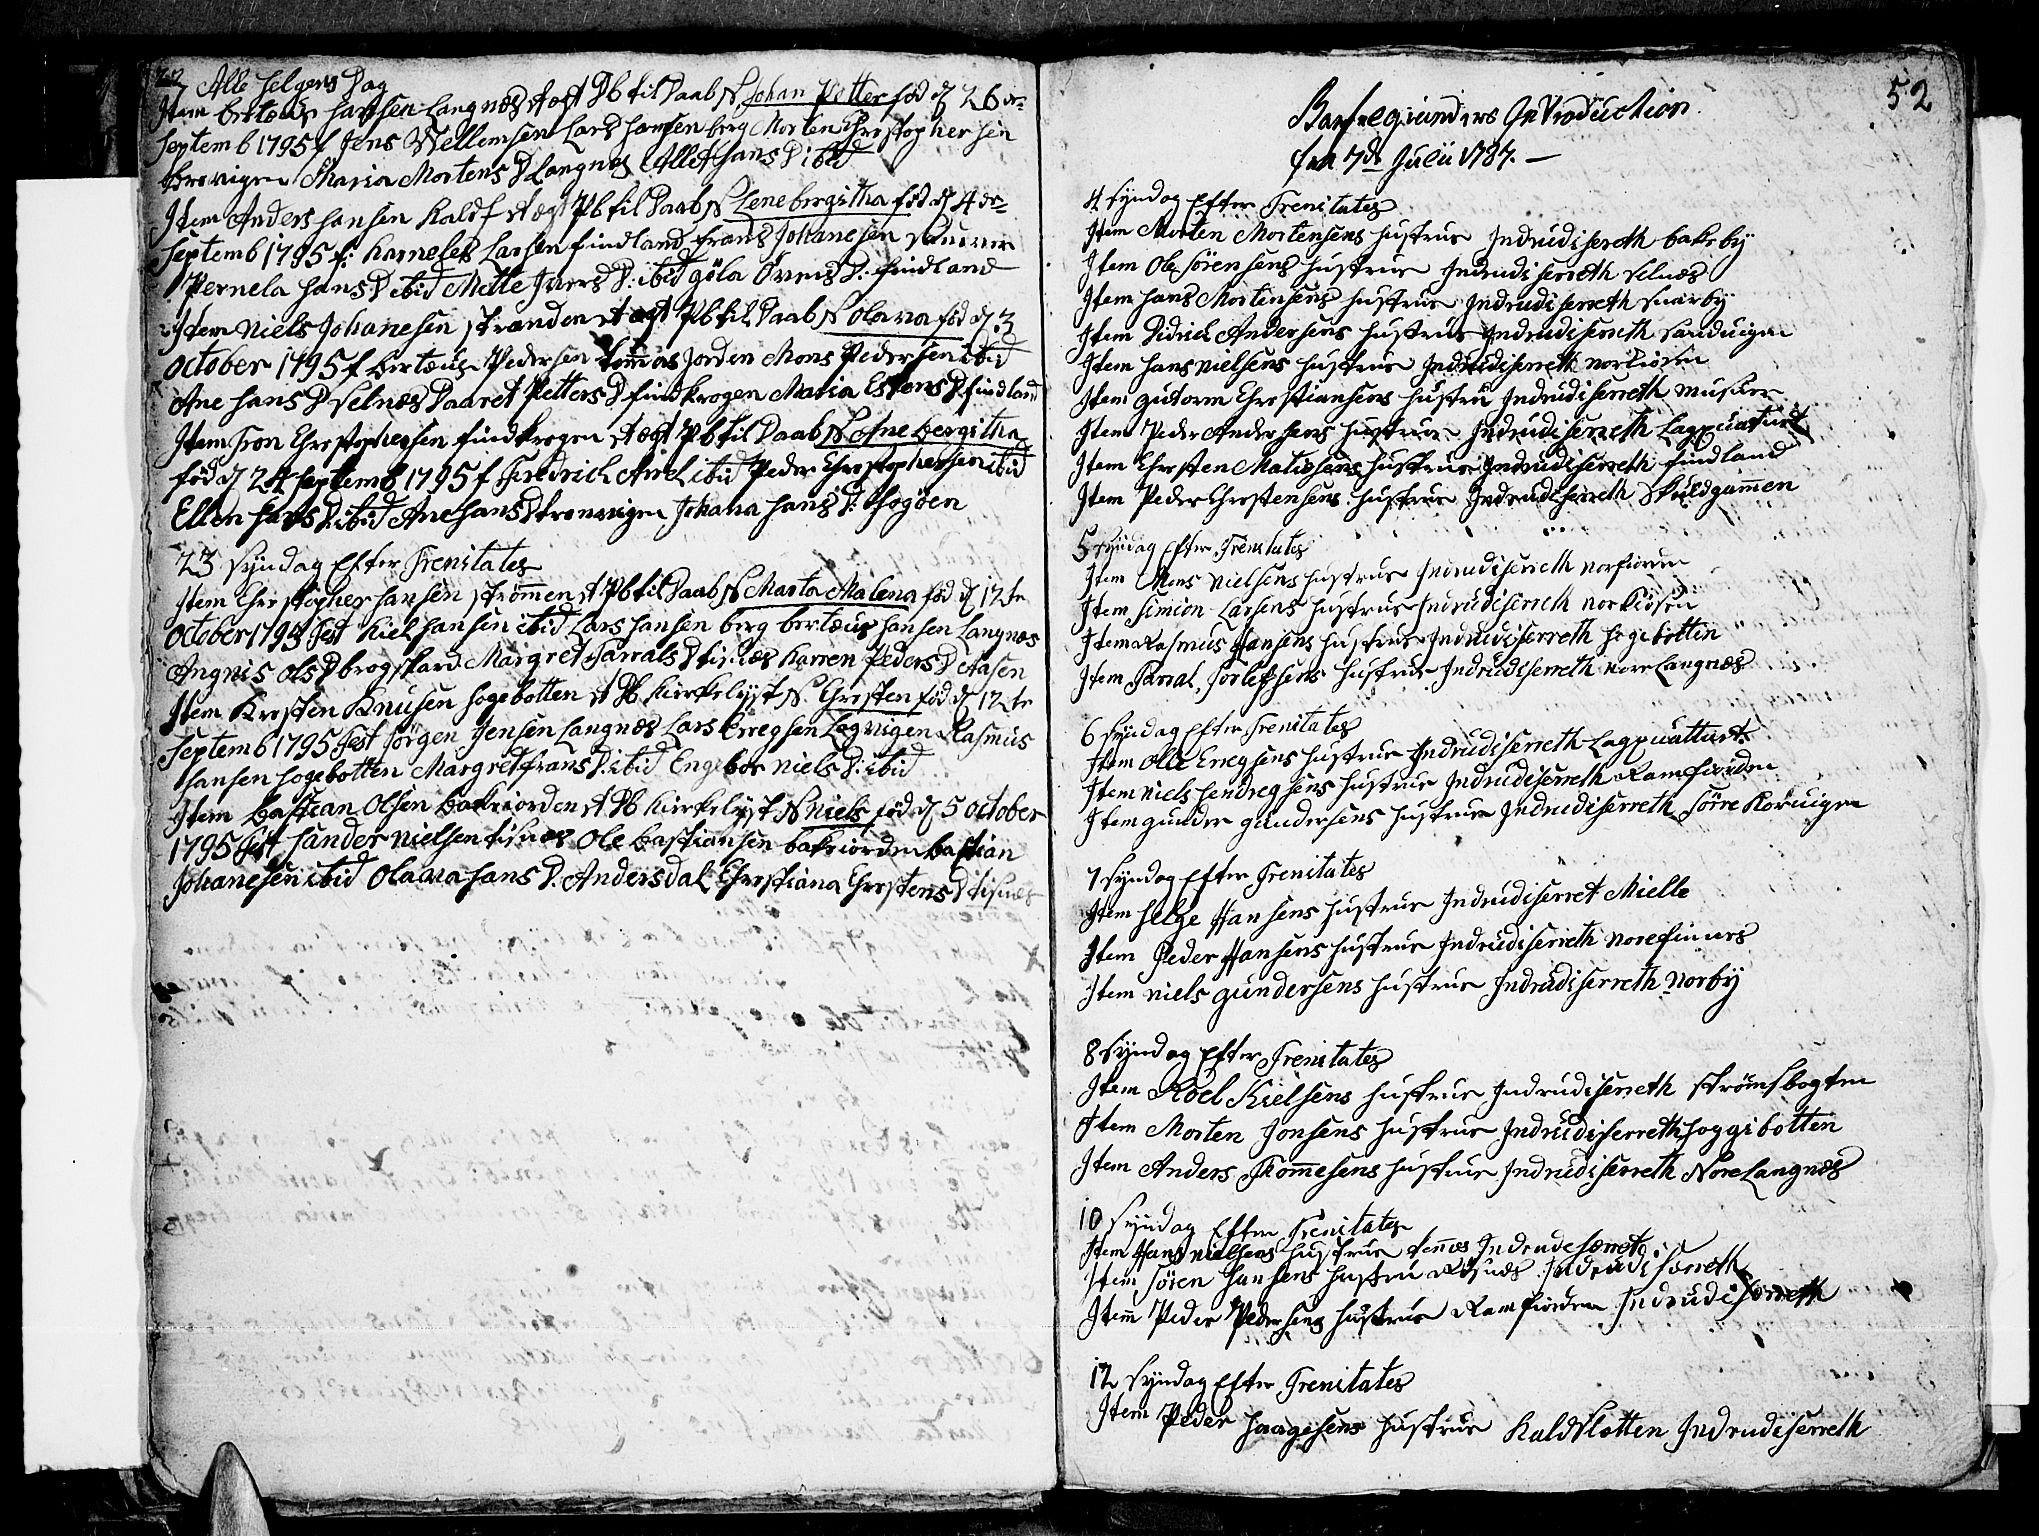 22 Alle Helgens Dag
Item bertæus Hansen Langnæs et ægt Pb til Daab N Johan Petter fød d 26 de
Septemb 1795 f Jens Wellemsen Lars Hansen berg Morten Chrestophersen
Maria Mortens D Langnes Alle Hans D ibid
Item Anders Hansen Kald f et ægt Pb til Daab N Lenebergitha fød d 4 de
Septemb 1795 f: Karneles Larsen findland frans Johanesen
Pernela Hans D ibid Mette Ivers D: ibid göla Övens D: findland
Item Niels Johanesen Stranden et ægt Pb til Daab N Olava fød d 3
October 1795 f bertæus Pedersen Tommas Jorden Mons Pedersen ibid
Ane Hans D Selnæs Daaret Petters D findkrogen Maria Estens D findland
Item Tron Chrestophersen findkrogen et ægt Pb til Daab N Ofnebergitha
fød d 24 Septemb 1795 f Fredrich Axel ibid Peder Chrestophersen ibid
Ellen Hans D: ibid Ane Hans D Johana Hans D:
23 Syndag Efter Trenitates
Item Chrestopher Hansen Strømmen et Pb til Daab N Marta Malena fød d 12te
October 1795 Test Kiel Hansen ibid Lars Hansen berg bertæus Hansen Langnæs
Angnis Ols D Margret Jarrals D tisnæs Karren Peders D Aasen
Item Kresten Knusen Hogebotten et Pb Kirkelyst N: Chresten fød d 12te
Septemb 1795 Test Jörgen Jensen Langnæs Lars Erregsen Lagvigen Rasmus
Hansen Hogebotten Margret frans D: ibid Engebor Niels D: ibid
Item Bastian Olsen Bakeiorden et Pb Kirkelyst N Niels fød d 5 October
1795 Test Sander Nielsen tisnæs Ole Bastiansen bakeiorden bastian
Johanesen ibid Olava Hans D. Andersdal Chrestiana Chrestens D tisnæs
52
Barselqvinders Introduction
fra 7de Julii 1787.
4 Syndag Efter Trenitates
Item Morten Mortensens Hustrue Indrudiserreth bakeby
Item Ole Sörensens Hustrue Indrudiserreth Selnæs
Item Hans Mortensens Hustrue Indrudiserreth Snarby
Item Didrich Andersens Hustrue Indrudiserreth Sandvigen
Item Hans Nielsens Hustrue Indrudiserreth Norkiosen
Item Gutorm Chrestiansens Hustru Indrudiserreth
Item Peder Andersens Hustrue Indrudiserreth Lagpuaturt
Item Chresten Matisens Hustrue Indrudiserreth findland
Item Peder Chrestensens Hustrue Indrudiserreth Skuldgammen
5 Syndag Efter Trenitates
Item Mons Nielsens Hustrue Indrudiserreth Norfiorden
Item Simion Larsens Hustrue Indrudiserreth Norkiosen
Item Rasmus Hansens Hustrue Indrudiserreth Hogebotten
Item Jarral Torlefsens Hustrue Indrudiserreth Nore Langnæs
6 Syndag Efter Trenitates
Item Olle Eriegsens Hustrue Indrudiserreth Lagpuatturt
Item Niels Hendregsens Hustrue Indrudiserreth Ramfiorden
Item Gunder Gundersens Hustrue Indrudiserreth Sörre Korvigen
7 Syndag Efter Trenitates
Item Helge Hansens Hustrue Indrudiserret Mielle
Item Peder Hansens Hustrue Indrudiserreth Norefinnes
Item Niels Gundersens Hustrue Indrudiserreth Norby
8 Syndag Efter Trenitates
Item Roel Kielsens Hustrue Indrudiserreth Strømsbogten
Item Morten Jonsens Hustrue Indrudiserreth Hoggibotten
Item Anders Tommesens Hustrue Indrudiserreth Nore Langnæs
10 Syndag Efter Trenitates
Item Hans Nielsens Hustrue Tennæs Indrudeserret
Item Sören Hansens Hustru Røsnæs Indrudiserreth
Item Peder Pedersens Hustrue Ramfiorden Indrudiserreth
12 Syndag Efter Trenitates
Item Peder Haagesens Hustrue Kaldslotten Indrudiserreth